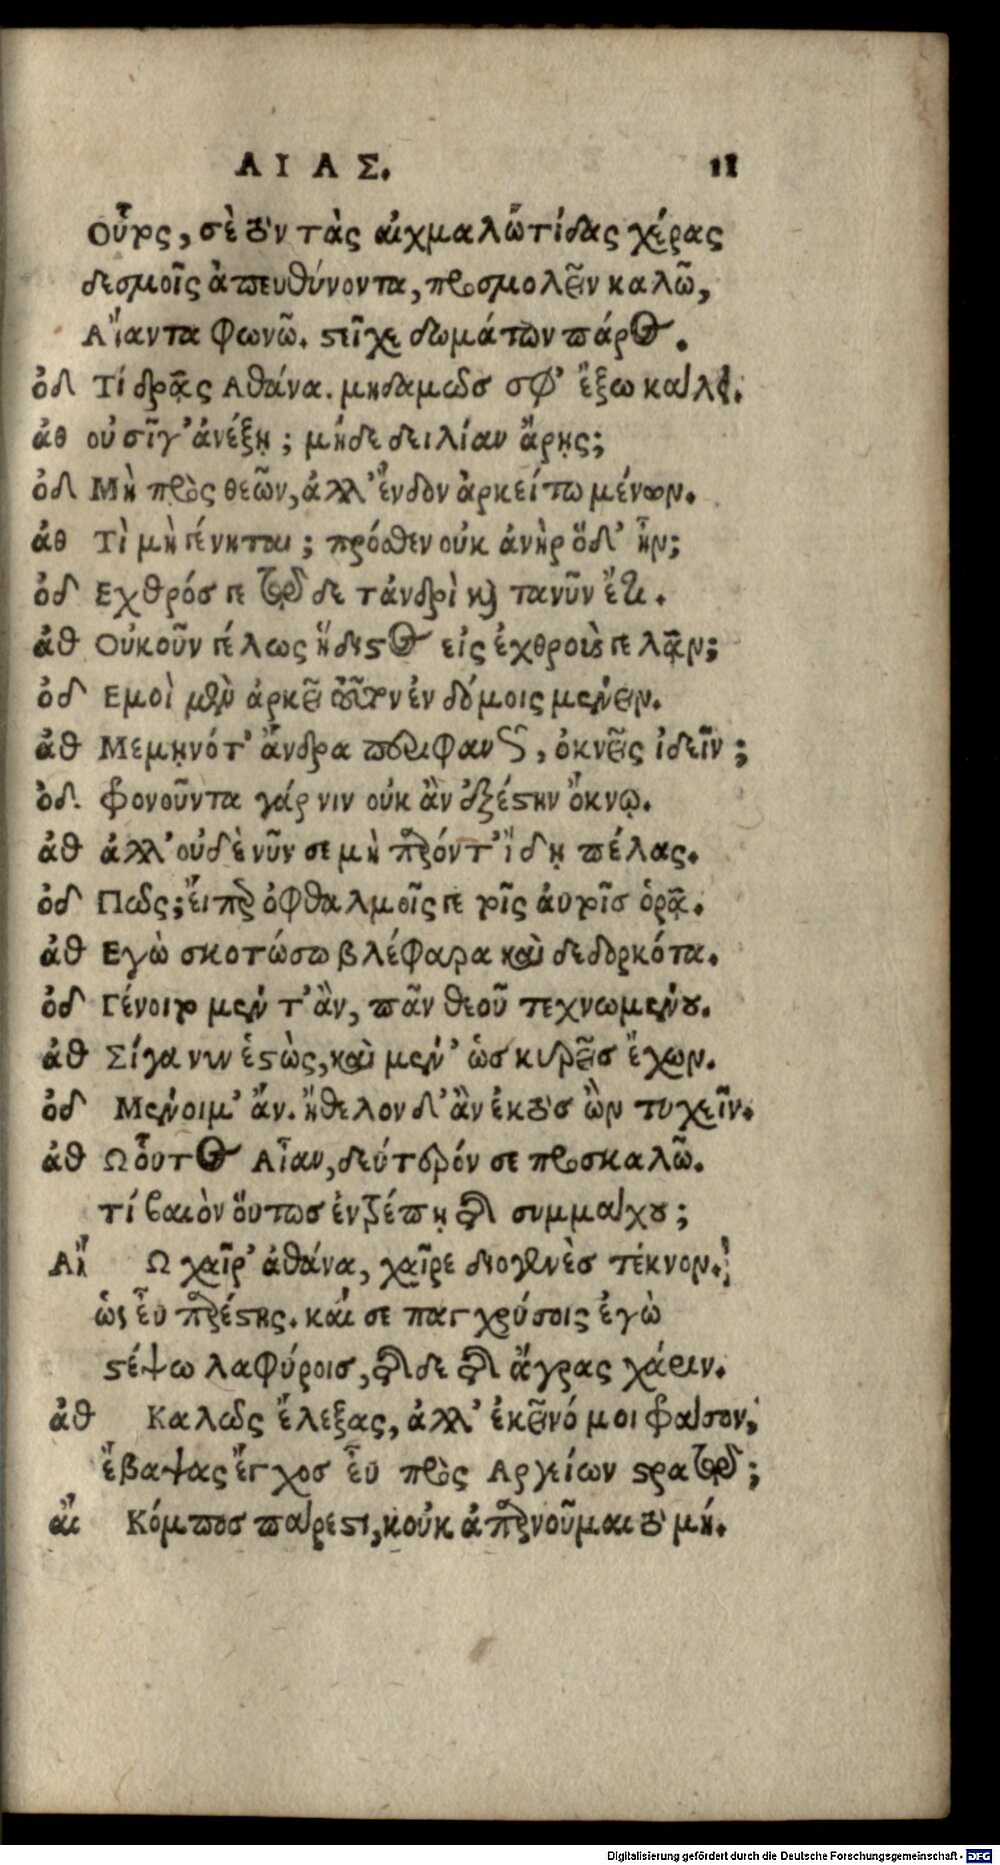 ΑΙΑΣ. 11
Οὗτος, σὲ τὸν τὰς αἰχμαλώτιδας χέρας
δεσμοῖς ἀπευθύνοντα, προσμολεῖν καλῶ,
Αἴαντα φωνῶ. στεῖχε δωμάτων πάρος.
ὀδ Τί δρᾷς Αθάνα. μηδαμῶς σφ' ἔξω κάλει.
ἀθ οὐ σῖγ' ἀνέξῃ; μήδε δειλίαν ἄρῃς;
ὀδ Μὴ πρὸς θεῶν, ἀλλ' ἔνδον ἀρκείτω μένων.
ἀθ Τὶ μὴ γένηται; πρόσθεν οὐκ ἀνὴρ ὅδ' ἦν;
ὀδ Εχθρός γε τῷδε τἀνδρὶ καὶ τανῦν ἔτι.
ἀθ Οὐκοῦν γέλως ἥδιστος εἰς ἐχθροὺς γελᾷν;
ὀδ Εμοὶ μὲν ἀρκεῖ τοῦτον ἐν δόμοις μένειν.
ἀθ Μεμῃνότ' ἄνδρα περιφανῶς, ὀκνεῖς ἰδεῖν;
ὀδ. φονοῦντα γάρ νιν οὐκ ἂν ἐξέστην ὄκνῳ.
ἀθ ἀλλ' οὐδὲ νῦν σε μὴ παρόντ' ἴδῃ πέλας.
ὀδ Πῶς; εἴπερ ὀφθαλμοῖς γε τοῖς αὐτοῖς ὁρᾷ.
ἀθ Εγὼ σκοτώσω βλέφαρα καὶ δεδορκότα.
ὀδ Γένοιτο μέν τ' ἂν, πᾶν θεοῦ τεχνωμένου.
ἀθ Σίγα νυν ἑστὼς, καὶ μέν' ὡς κυρεῖς ἔχων.
ὀδ Μένοιμ' ἄν. ἤθελον δ' ἂν ἐκτὸς ὢν τυχεῖν.
ἀθ Ω οὗτος Αἶαν, δεύτερόν σε προσκαλῶ.
τί βαιὸν οὕτως ἐντρέπῃ τῆς συμμάχου;
Αἴ Ω χαῖρ' ἀθάνα, χαῖρε διογενὲς τέκνον.
ὡς εὖ παρέστης. καί σε παγχρύσοις ἐγὼ
στέψω λαφύροις, τῆσδε τῆς ἄγρας χάριν.
ἀθ Καλῶς ἔλεξας, ἀλλ' ἐκεῖνό μοι φράσον,
ἔβαψας ἔγχος εὖ πρὸς Αργείων στρατῷ;
αἴ Κόμπος πάρεστι, κοὐκ ἀπαρνοῦμαι τὸ μή.
Digitalisierung gefördert durch die Deutsche Forschungsgemeinschaft - DFG